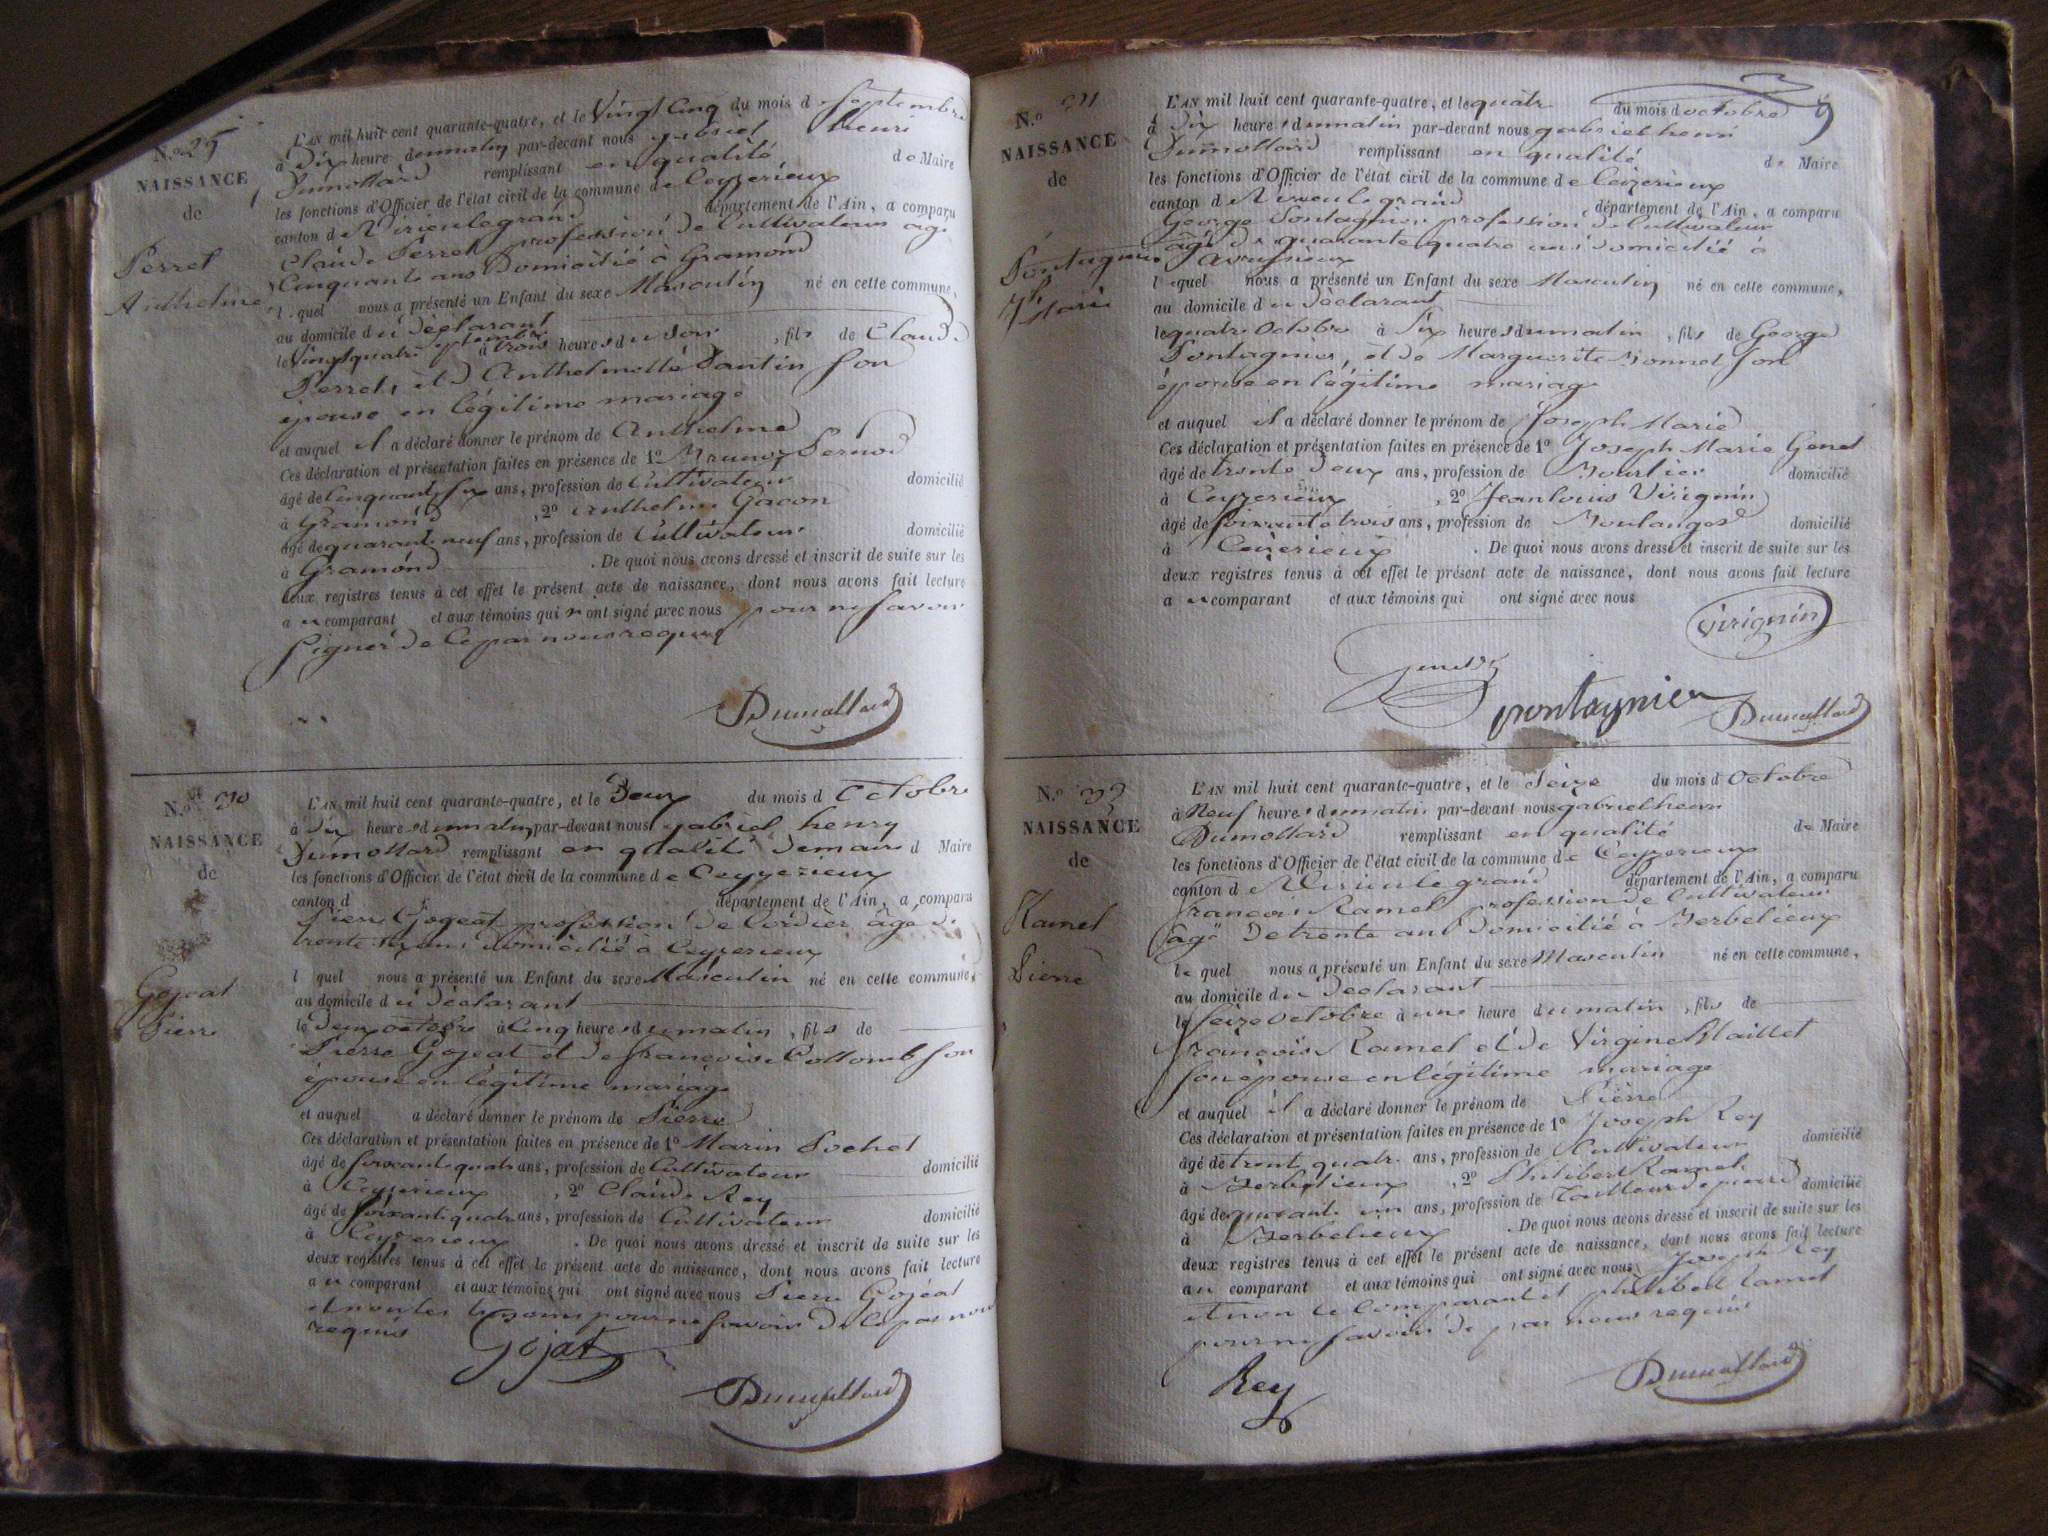 N.º 29
NAISSANCE
de
Perret
Anthelme
L'AN mil huit cent quarante-quatre, et le Vingt Cinq du mois d septembre
à Dix heure du matin par-devant nous gabriel henri
Dumollard remplissant en qualité de Maire
les fonctions d'Officier de l'état civil de la commune de Ceyzerieux
canton de Virieulegrand département de l'Ain, a comparu
Claude Perret profession de Cultivateur agé
Cinquante ans Domicilié à Gramond
l quel nous a présenté un Enfant du sexe Masculin né en cette commune,
au domicile du déclarant
le Vingtquatre septembre à trois heures du soir, fils de Claude
Perret, et d Anthelmette Santin son
épouse en légitime mariage
et auquel il a déclaré donner le prénom de Anthelme
Ces déclaration et présentation faites en présence de 1º Bruno Pernod
âgé de Cinquante six ans, profession de Cultivateur domicilié
à Gramond, 2º Anthelme Gacon
âgé de quarante neuf ans, profession de Cultivateur domicilié
à Gramond. De quoi nous avons dressé et inscrit de suite sur les
deux registres tenus à cet effet le présent acte de naissance, dont nous avons fait lecture
au comparant et aux témoins qui n ont signé avec nous pour ne savoir
signer de ce par nous requis
Dumollard
N.º 30
NAISSANCE
de
Gojeat
Pierre
L'AN mil huit cent quarante-quatre, et le Deux du mois d Octobre
à Dix heures du matin par-devant nous gabriel henry
Dumollard remplissant en qualité de maire d Maire
les fonctions d'Officier de l'état civil de la commune de Ceyzerieux
canton d département de l'Ain, a comparu
Pierre Gogeat profession de Cordier âgé de
trente ans domicilié à Ceyzerieux
l quel nous a présenté un Enfant du sexe Masculin né en cette commune,
au domicile du déclarant
le Deux octobre à Cinq heures du matin, fils de
Pierre Gojeat et de françoise Collomb son
épouse en légitime mariage
et auquel a déclaré donner le prénom de Pierre
Ces déclaration et présentation faites en présence de 1º Marin Pochet
âgé de soixante quatre ans, profession de Cultivateur domicilié
à Ceyzerieux, 2º Claude Rey
âgé de soixante quatre ans, profession de Cultivateur domicilié
à Ceyzerieux. De quoi nous avons dressé et inscrit de suite sur les
deux registres tenus à cet effet le présent acte de naissance, dont nous avons fait lecture
au comparant et aux témoins qui ont signé avec nous Pierre Gojéat
et non les temoins pour ne savoir de ce par nous
requis
Gojat
Dumollard
9
N.º 31
NAISSANCE
de
Pontagnier
Jh Marie
L'AN mil huit cent quarante-quatre, et le quatre du mois d octobre
à Dix heures du matin par-devant nous gabriel henri
Dumollard remplissant en qualité de Maire
les fonctions d'Officier de l'état civil de la commune de Ceizerieux
canton de Virieulegrand département de l'Ain, a comparu
George Pontagnier profession de Cultivateur
âgé de quarante quatre ans domicilié à
Avrissieux
lequel nous a présenté un Enfant du sexe Masculin né en cette commune,
au domicile du déclarant
le quatre Octobre à Six heures du matin, fils de George
Pontagnier, et de Marguerite Bonnet son
épouse en légitime mariage
et auquel il a déclaré donner le prénom de Joseph Marie
Ces déclaration et présentation faites en présence de 1º Joseph Marie Genet
âgé de trente Deux ans, profession de domicilié
à Ceyzerieux, 2º Jean louis Virignin
âgé de soixante trois ans, profession de Boulanger domicilié
à Ceizerieux. De quoi nous avons dressé et inscrit de suite sur les
deux registres tenus à cet effet le présent acte de naissance, dont nous avons fait lecture
au comparant et aux témoins qui ont signé avec nous
Virignin
Genet
pontagnier Dumollard
N.º 32
NAISSANCE
de
Ramel
Pierre
L'AN mil huit cent quarante-quatre, et le Seize du mois d Octobre
à Neuf heures du matin par-devant nous gabriel henri
Dumollard remplissant en qualité de Maire
les fonctions d'Officier de l'état civil de la commune de Ceyzerieux
canton de Virieulegrand département de l'Ain, a comparu
françois Ramel profession de Cultivateur
âgé De trente ans Domicilié à Berbelieux
le quel nous a présenté un Enfant du sexe Masculin né en cette commune,
au domicile du Déclarant
le seize octobre à une heure du matin, fils de
françois Ramel et de Virgine Maillet
son épouse en légitime mariage
et auquel il a déclaré donner le prénom de Pierre
Ces déclaration et présentation faites en présence de 1º Joseph Rey
âgé de trente quatre ans, profession de Cultivateur domicilié
à Berbelieux, 2º Philibert Ramel
âgé de quarante un ans, profession de Tailleur de pierre domicilié
à Berbelieux. De quoi nous avons dressé et inscrit de suite sur les
deux registres tenus à cet effet le présent acte de naissance, dont nous avons fait lecture
au comparant et aux témoins qui ont signé avec nous Joseph Rey
et non le Comparant et philibert Ramel
pour ne savoir de par nous requis
Rey
Dumollard